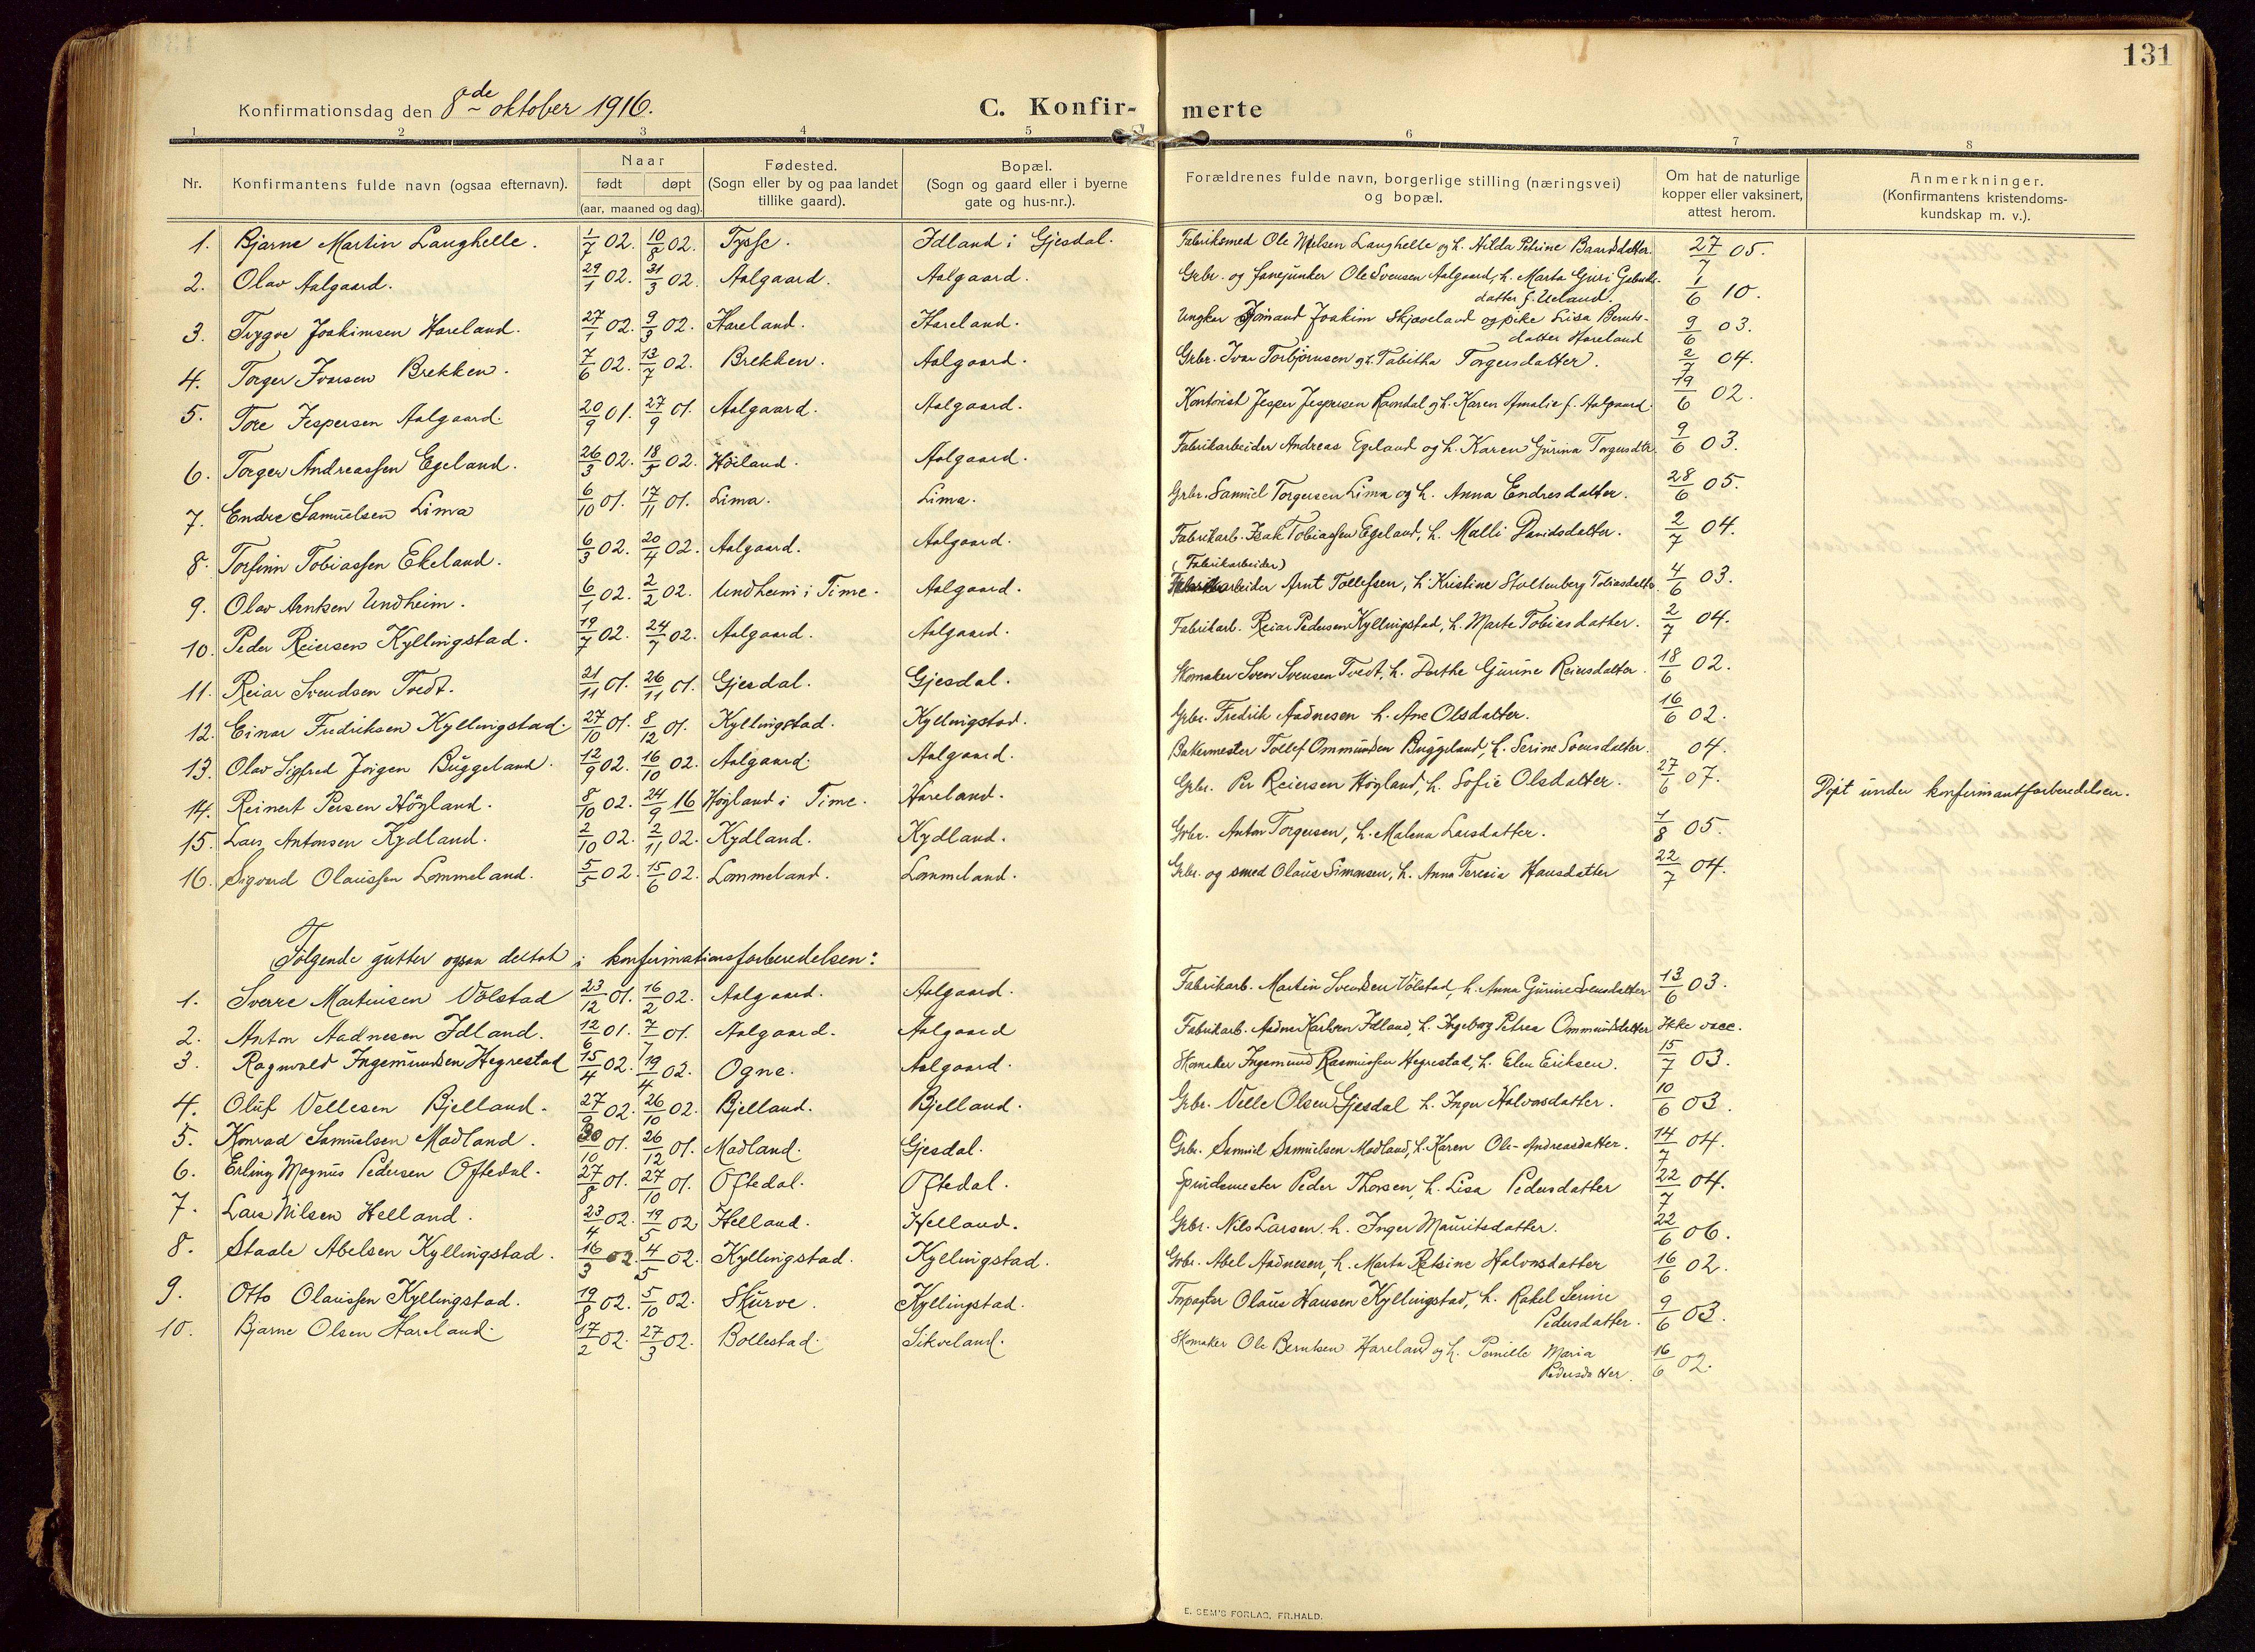 131
Konfirmationsdag den 8de oktober 1916.
C. Konfir- merte
1 2 3 4 5 6 7 8
Nr.
Konfirmantens fulde navn (ogsaa efternavn).
Naar
født døpt
(aar, maaned og dag).
Fødested.
(Sogn eller by og paa landet
tillike gaard).
Bopæl.
(Sogn og gaard eller i byerne
gate og hus-nr.).
Forældrenes fulde navn, borgerlige stilling (næringsvei)
og bopæl.
Om hat de naturlige
kopper eller vaksinert,
attest herom.
Anmerkninger.
(Konfirmantens kristendoms-
kundskap m. v.).
1. Bjarne Martin Laughelle. 1/7 02. 10/8 02. Tysse. Idland i Gjesdal. Fabriksmed Ole Nielsen Laughelle og h. Hilda Petrine Baardsdatter. 27/7 05.
2. Olav Aalgaard. 29/1 02. 31/3 02. Aalgaard. Aalgaard. Grbr. og fanejunker Ole Svensen Aalgaard, h. Marta Guri Gabriels-
datter f. Ueland. 1/6 10.
3. Trygve Joakimsen Hareland. 27/1 02. 9/3 02. Hareland. Hareland. Ungkar Joakim Skjæveland og pike Lisa Bernts-
datter Hareland 9/6 03.
4. Torger Ivarsen Brekken. 7/6 02. 13/7 02. Brekken. Aalgaard. Grbr. Ivar Torbjørnsen og h. Tabitha Torgersdatter. 2/7 04.
5. Tore Jespersen Aalgaard. 20/9 01. 27/9 01. Aalgaard. Aalgaard. Kontorist Jesper Jespersen Ramdal og h. Karen Amalie f. Aalgaard. 19/6 02.
6. Torger Andreassen Egeland. 26/3 02. 18/5 02. Høiland. Aalgaard. Fabrikarbeider Andreas Egeland og h. Karen Gurina Torgersdtr. 9/6 03.
7. Endre Samuelsen Lima 6/10 01. 17/11 01. Lima. Lima. Grbr. Samuel Torgersen Lima og h. Anna Endresdatter. 28/6 05.
8. Torfinn Tobiassen Ekeland. 6/3 02. 20/4 02. Aalgaard. Aalgaard. Fabrikarb. Isak Tobiassen Egeland, h. Malli Davidsdatter. 2/7 04.
(Fabrikarbeider)
9. Olav Arntsen Undheim. 6/1 02. 2/2 02. Undheim i Time. Aalgaard. arbeider Arnt Tollefsen, h. Kristine Stoltenberg Tobiasdatter. 4/6 03.
10. Peder Reiersen Kyllingstad. 19/7 02. 24/7 02. Aalgaard. Aalgaard. Fabrikarb. Reiar Pedersen Kyllingstad, h. Marte Tobiasdatter. 2/7 04.
11. Reiar Svendsen Tvedt. 21/11 01. 26/11 01. Gjesdal. Gjesdal. Skomaker Sven Svensen Tvedt, h. Dorthe Gjurine Reiersdatter. 18/6 02.
12. Einar Fredriksen Kyllingstad. 27/10 01. 8/12 01. Kyllingstad. Kyllingstad. Grbr. Fredrik Aadnesen h. Ane Olsdatter. 16/6 02.
13. Olav Sigfred Jørgen Buggeland. 12/9 02. 16/10 02. Aalgaard. Aalgaard. Bakermester Tollef Ommundsen Buggeland, h. Serine Svensdatter. 04.
14. Reinert Persen Høgland. 8/10 02. 24/9 16 Høgland i Time. Hareland. Grbr. Per Reiersen Høgland, h. Sofie Olsdatter. 27/6 07. Døpt under konfirmantforberedelsen.
15. Lars Antonsen Kydland. 2/10 02. 2/11 02. Kydland. Kydland. Grbr. Anton Torgersen, h. Malena Larsdatter. 1/8 05.
16. Sigvard Olaussen Lommeland. 5/5 02. 15/6 02. Lommeland. Lommeland. Grbr. og smed Olaus Simonsen, h. Anna Teresia Hansdatter 22/7 04.
Følgende gutter ogsaa deltok i konfirmationsforberedelsen:
1. Sverre Martinsen Vølstad 23/12 01. 16/2 02. Aalgaard. Aalgaard. Fabrikarb. Martin Svendsen Vølstad, h. Anna Gurine Svensdatter 13/6 03.
2. Anton Aadnesen Idland. 12/6 01. 7/7 01. Aalgaard. Aalgaard Fabrikarb. Aadne Karlsen Idland, h. Ingeborg Petrea Ommundsdatter Ikke vacc.
3. Ragnvald Ingemundsen Hegrestad 15/4 02. 19/4 02. Ogne. Aalgaard. Skomaker Ingemund Rasmussen Hegrestad, h. Elen Eriksen. 15/7 03.
4. Oluf Vellesen Bjelland. 27/9 02. 26/10 02. Bjelland. Bjelland. Grbr. Velle Olsen Gjesdal h. Inger Halvorsdatter. 10/6 03.
5. Konrad Samuelsen Madland. 30/10 01. 26/12 01. Madland. Gjesdal. Grbr. Samuel Samuelsen Madland, h. Karen Ole-Andreasdatter. 14/7 04.
6. Erling Magnus Pedersen Oftedal. 27/8 01. 27/10 01. Oftedal. Oftedal. Spindemester Peder Thorsen, h. Lisa Pedersdatter 22/7 04.
7. Lars Nilsen Helland. 23/4 02. 19/5 02 Helland. Helland. Grbr. Nils Larsen. h. Inger Mauritsdatter. 22/6 06.
8. Staale Abelsen Kyllingstad. 16/3 02. 4/5 02. Kyllingstad. Kyllingstad. Grbr. Abel Aadnesen, h. Marta Retsine Halvorsdatter 16/6 02.
9. Otto Olaussen Kyllingstad. 19/8 02. 5/10 02. Skurve. Kyllingstad. Forpagter Olaus Hansen Kyllingstad, h. Rakel Serine
Pedersdatter. 9/6 03.
10. Bjarne Olsen Hareland. 17/2 02. 27/3 02. Bollestad. Sikveland. Skomaker Ole Berntsen Hareland og h. Pernille Maria
Pedersdatter. 16/6 02.
E. SEM'S FORLAG, FR.HALD.